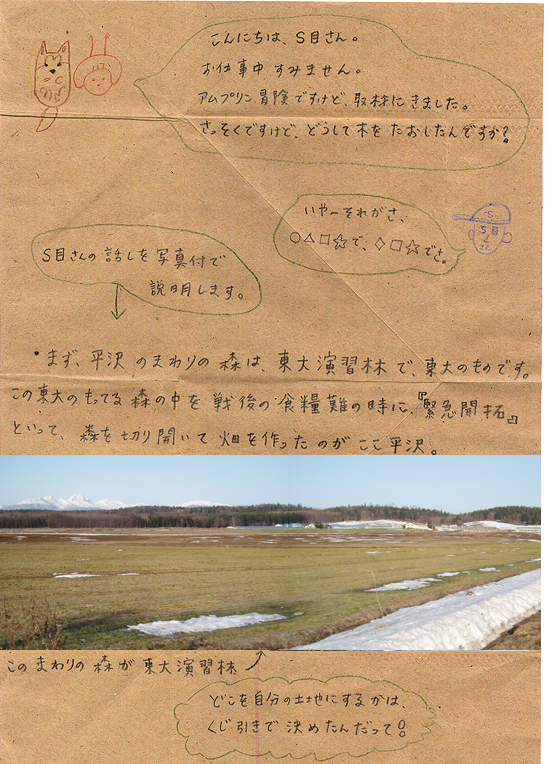 こんにちは、S目さん。
お仕事中すみません。
アムプリン冒険ですけど、取材にきました。
さっそくですけど、どうして木をたおしたんですか?
いや〜それがさ、
○△□☆で、◇□☆でさ。
S目さんの話しを写真付で
説明します。
・まず、平沢のまわりの森は、東大演習林で、東大のものです。
この東大のもってる森の中を戦後の食糧難の時に、『緊急開拓』
といって、森を切り開いて畑を作ったのがここ平沢。
このまわりの森が東大演習林
どこを自分の土地にするかは、
くじ引きで決めたんだって!!